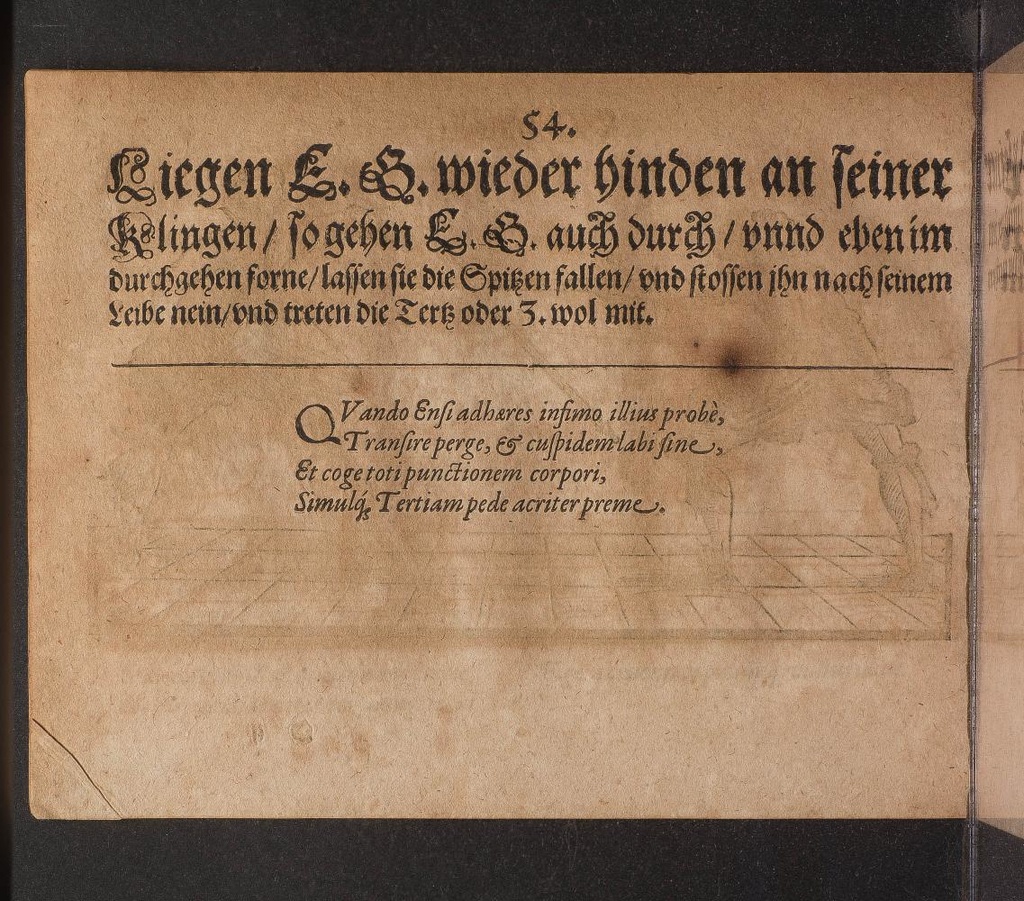 54.
Liegen E. G. wieder hinden an seiner
Klingen / so gehen E. G. auch durch / vnnd eben im
durchgehen forne / lassen sie die Spitzen fallen / vnd stossen jhn nach seinem
Leibe nein / vnd treten die Tertz oder 3. wol mit.
QVando Ensi adhæres infimo illius probè,
Transire perge, & cuspidem labi sine,
Et coge toti punctionem corpori,
Simulq́; Tertiam pede acriter preme.